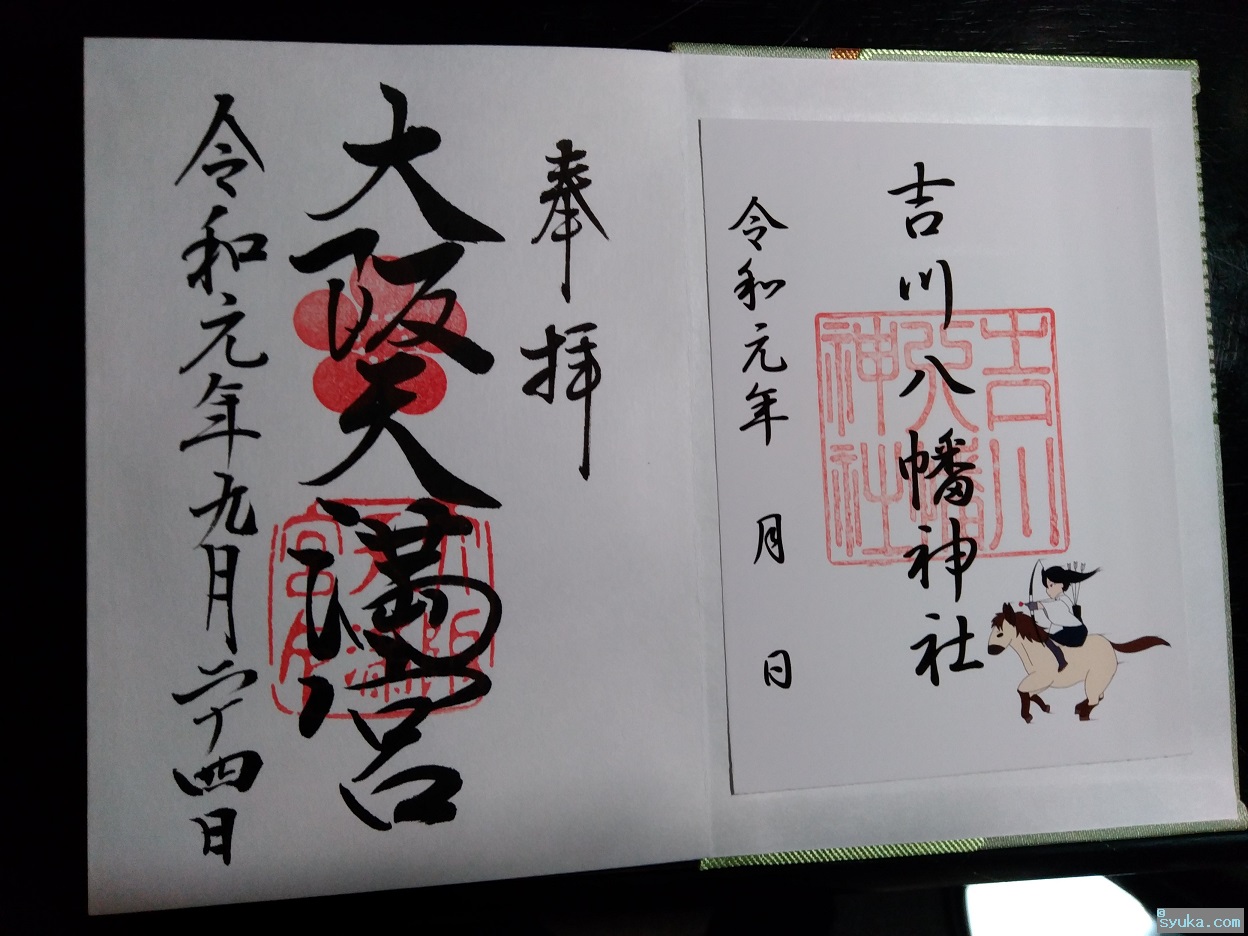 吉川八幡神社
吉川八幡神社
令和元年 月 日
奉拝
大阪天満宮
令和元年九月二十四日
@syuka.com